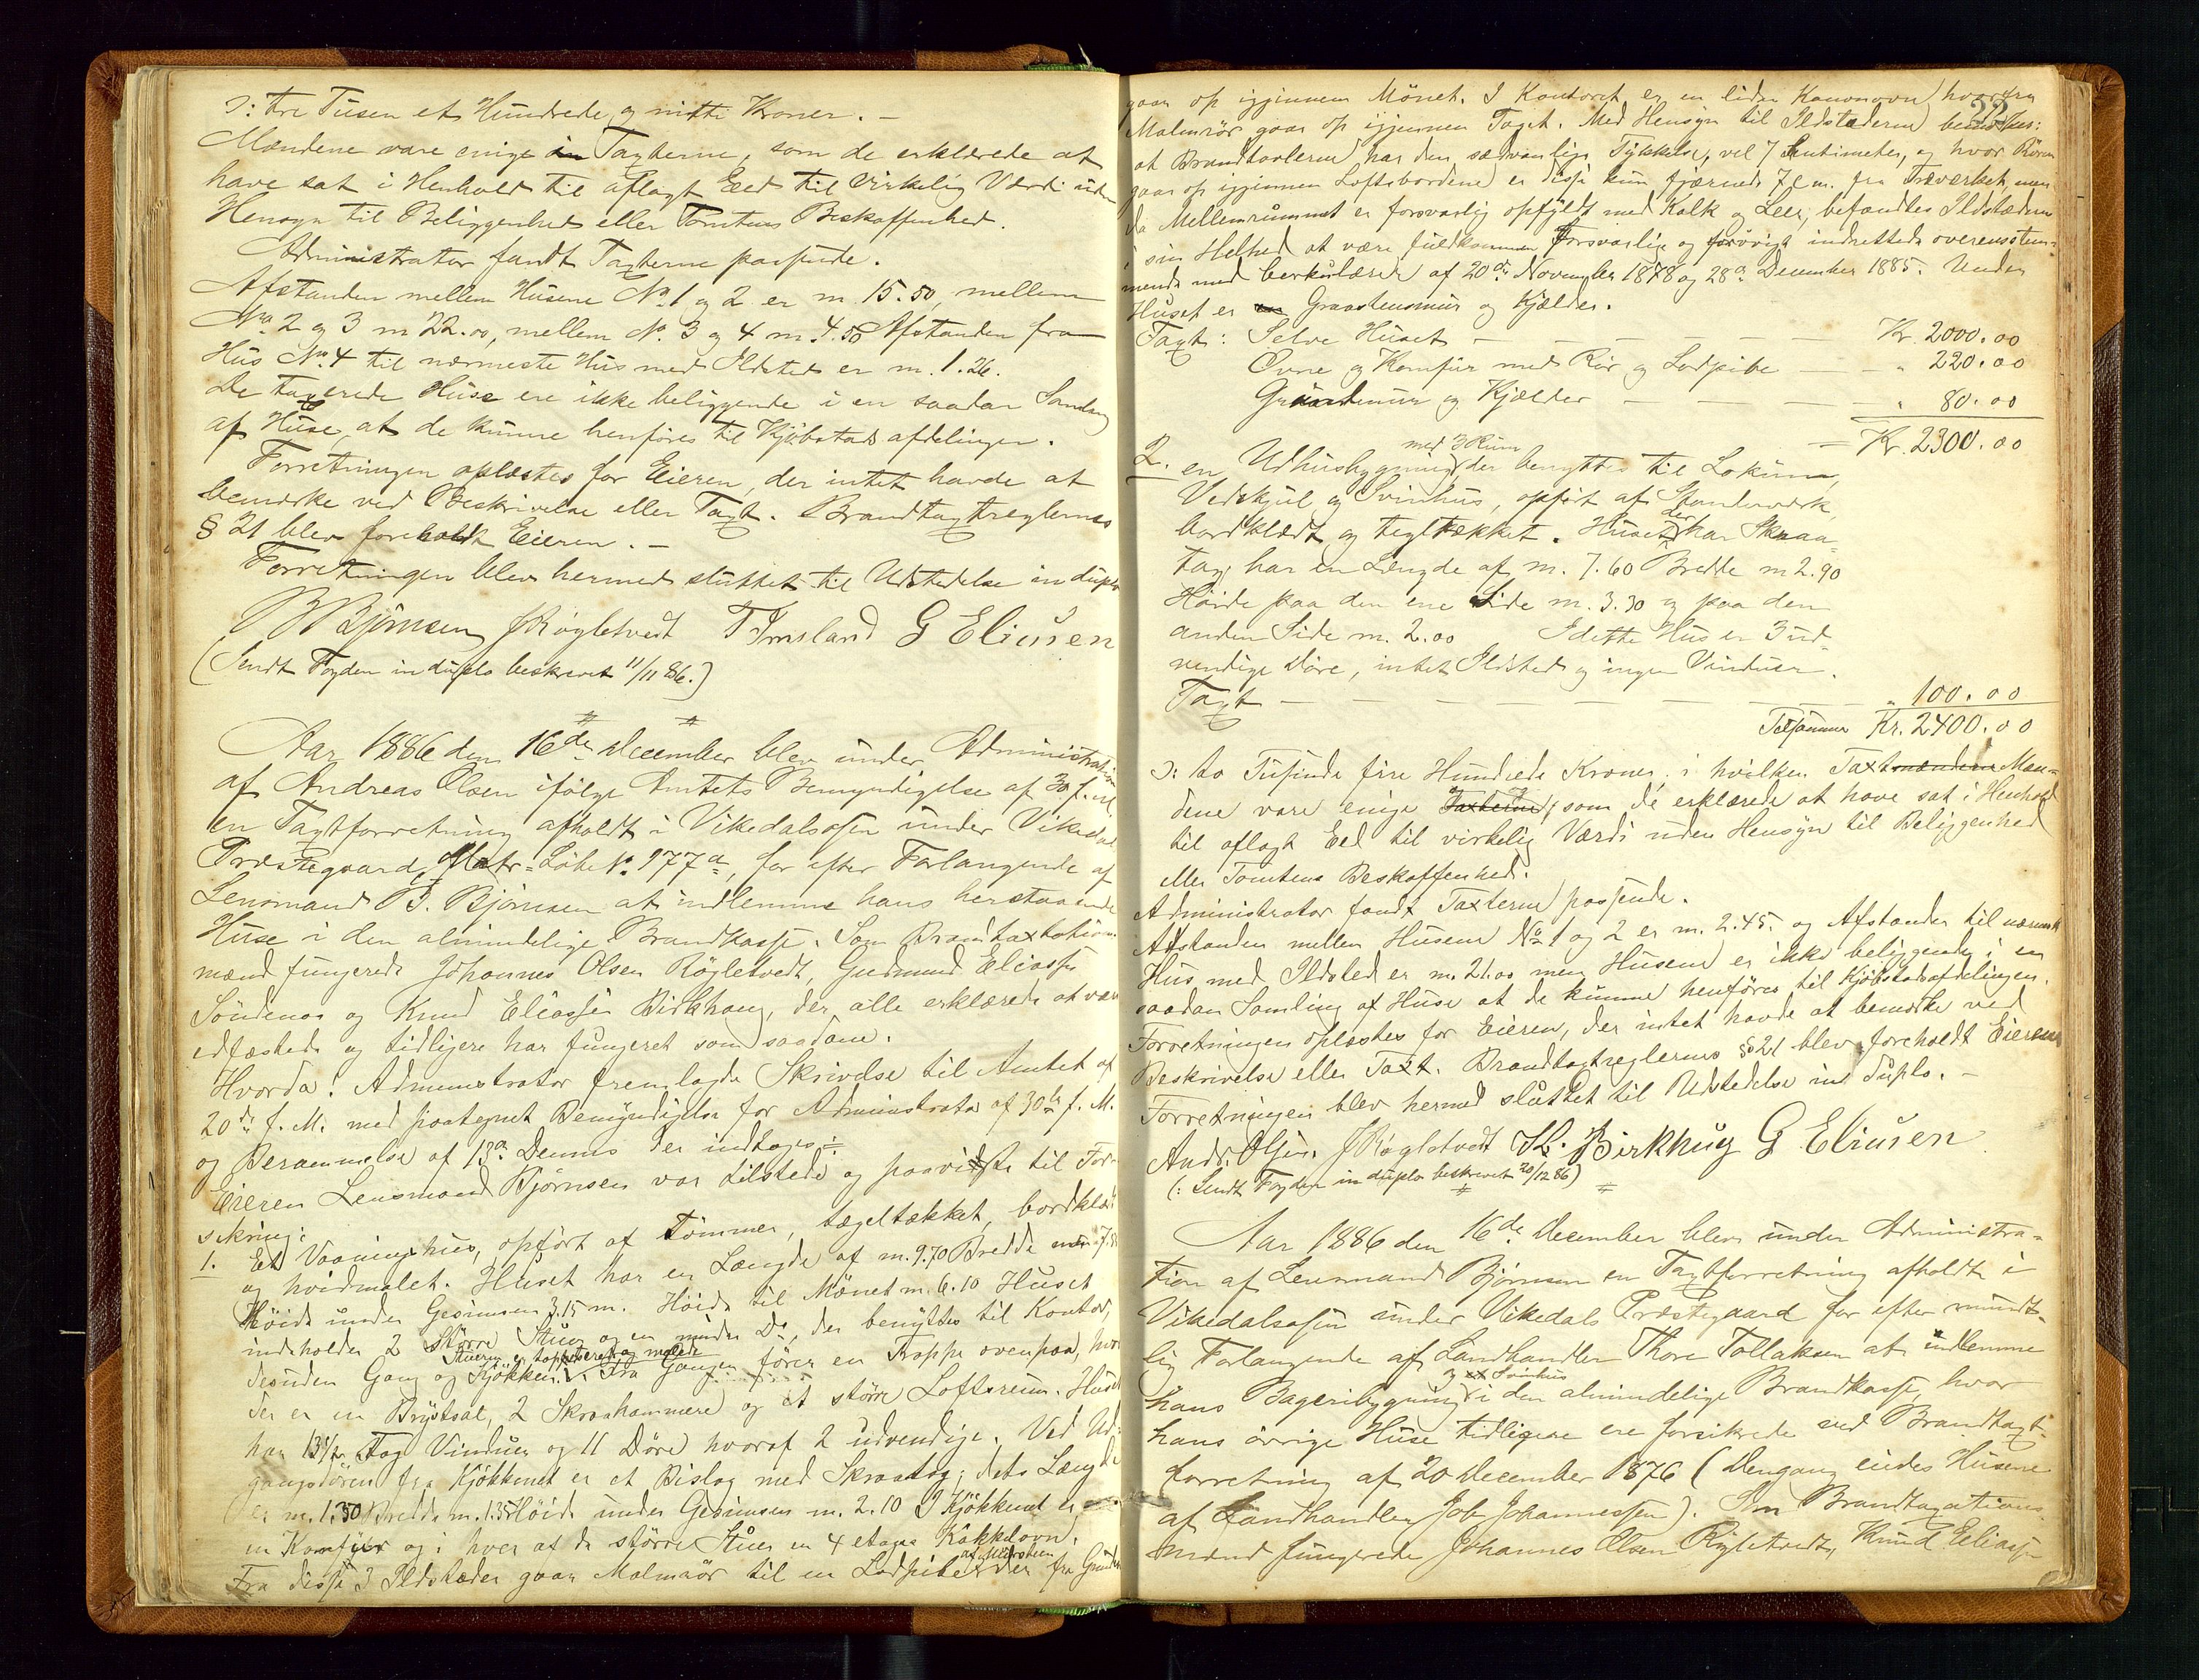 ɔ: tre Tusen et Hundrede og nitti Kroner. –
Mændene vare enige om Taxterne, som de erklærede at
have sat i Henhold til aflagt Eed til virkelig Værdi uden
Hensyn til Beliggenhed eller Tomtens Beskaffenhed.
Administrator fandt Taxterne passende.
Afstanden mellem Husene No 1 og 2 er m. 15.50, mellem
No 2 og 3 m 22.00, mellem No. 3 og 4 m 4.50 Afstanden fra
Hus No. 4 til nærmeste Hus med Ildsted er m. 1.26.
De taxerede Huse ere ikke beliggende i en saadan Samling
af Huse, at de kunne henføres til Kjøbstadsafdelingen.
Forretningen oplæstes for Eieren, der intet havde at
bemærke ved Beskrivelse eller Taxt. Brandtaxtreglernes
§ 21 blev foreholdt Eieren. –
Forretningen blev hermed sluttet til Udstedelse in duplo
B Bjørnsen JRøgletvedt T Imsland G Eliusen
(Sendt Fogden in duplo beskrevet 11/11 86.)
Aar 1886 den 16de December blev under Administration
af Andreas Olsen ifølge Amtets Bemyndigelse af 30 f. M.
en Taxtforretning afholdt i Vikedalsøsen under Vikedal
Præstegaard, Matr. Løbe No. 177a, for efter Forlangende af
Lensmand B. Bjørnsen at indlemme hans herstaaende
Huse i den almindelige Brandkasse. Som Brandtaxtations
mænd fungerede Johannes Olsen Røgletvedt, Gudmund Eliassen
Søndenaa og Knud Eliassen Birkhaug, der alle erklærede at være
edfæstede og tidligere har fungeret som saadane.
Hvorda: Administrator fremlagde Skrivelse til Amtet af
20de f. M. med paategnet Bemyndigelse for Administrator af 30te f. M.
og Berammelse af 13de Dennes der indtages:
Eieren Lensmand Bjørnsen var tilstede og paaviste til For-
sikring:
1. Et Vaaningshus, opført af Tømmer, tægeltækket, bordklædt
og hvidmalet. Huset har en Længde af m. 9.70 Bredde m
Høide under Gesimsen 3.15 m. Høide til Mønet m. 6.10 Huset
indeholder 2 større Stuer og en mindre Do, der benyttes til Kontor,
Stuerne er tapetseret og malede
desuden Gang og Kjøkken. Fra Gangen fører en Trappe ovenpaa, hvor
der er en Brystsal, 2 Skraakammere og et større Loftsrum. Huset
har 13 1/2 Fag Vinduer og 11 Døre hvoraf 2 udvendige. Ved Ud-
gangsdøren fra Kjøkkenet er et Bislag med Skraatag; dets Længde
er m. 1.30 Bredde m. 1.35 Høide under Gesimsen m. 2.10 I Kjøkkenet er
en Komfur og i hver af de større Stuer en 4 etages Kakkelovn.
af Mursten
Fra disse 3 Ildstæder gaar Malmrør til en Lodpibe der fra Grunden
gaar op igjennem Mønet. I Kontoret er en liden Kanonovn hvorfra
Malmrør gaar op igjennem Taget. Med Hensyn til Ildstæderne bemærkes:
at Brandtavlerne har den sædvanlige Tykkelse, vel 7 Centimeter, og hvor Rørene
gaar op igjennem Loftsbordene er disse kun fjærnede 7 cm. fra Træverket, men
da Mellemrummet er forsvarlig opfyldt med Kalk og Leer, befandtes Ildstæderne
i sin Helhed at være fuldkommen forsvarlige og forøvrigt indrettede overensstem-
mende med Cerkulærer af 20de November 1878 og 28de December 1885. Under
Huset er Graastensmur og Kjælder.
Taxt: Selve Huset – – – – Kr. 2000.00
Ovne og Komfur med Rør og Lodpibe – – " 220.00
Graastenmur og Kjælder – – – " 80.00
= Kr. 2300.00
med 3 Rum
2. en Udhusbygning der benyttes til Lokum,
Vedskjul og Svinhus, opført af Standværk,
bordklædt og tegltækket. Huset der har Skraa-
tag, har en Længde af m. 7.60 Bredde m 2.90
Høide paa den ene Side m. 3.30 og paa den
anden Side m. 2.00 I dette Hus er 3 ud-
vendige Døre, intet Ildsted og ingen Vinduer.
Taxt – – – – – – – " 100.00
Tilsammen Kr. 2400.00
ɔ: to Tusinde fire Hundrede Kroner, i hvilken Taxt Mæn-
dene vare enige, som de erklærede at have sat i Henhold
til aflagt Eed til virkelig Værdi uden Hensyn til Beliggenhed
eller Tomtens Beskaffenhed.
Administrator fandt Taxterne passende.
Afstanden mellem Husene No 1 og 2 er m. 2.45. og Afstanden til nærmeste
Hus med Ildsted er m. 21.00 men Husene er ikke beliggende i en
saadan Samling af Huse at de kunne henføres til Kjøbstadsafdelingen.
Forretningen oplæstes for Eieren, der intet havde at bemærke ved
Beskrivelse eller Taxt. Brandtaxtreglernes § 21 blev foreholdt Eieren
Forretningen blev hermed sluttet til Udstedelse in duplo. –
Andr. Olsen. JRøgletvedt K E. Birkhug G Eliusen
(: Sendt Fogden in duplo beskrevet 20/12 86)
Aar 1886 den 16de December blev under Administra-
tion af Lensmand Bjørnsen en Taxtforretning afholdt i
Vikedalsøsen under Vikedals Præstegaard for efter mundt-
lig Forlangende af Landhandler Thore Tollaksen at indlemme
og Svinhus
hans Bageribygning i den almindelige Brandkasse, hvor
hans øvrige Huse tidligere ere forsikrede ved Brandtaxt-
forretning af 20 December 1876 (Dengang eiedes Husene
af Landhandler Job Johannessen). Som Brandtaxations
mænd fungerede Johannes Olsen Røgletvedt, Knud Eliassen